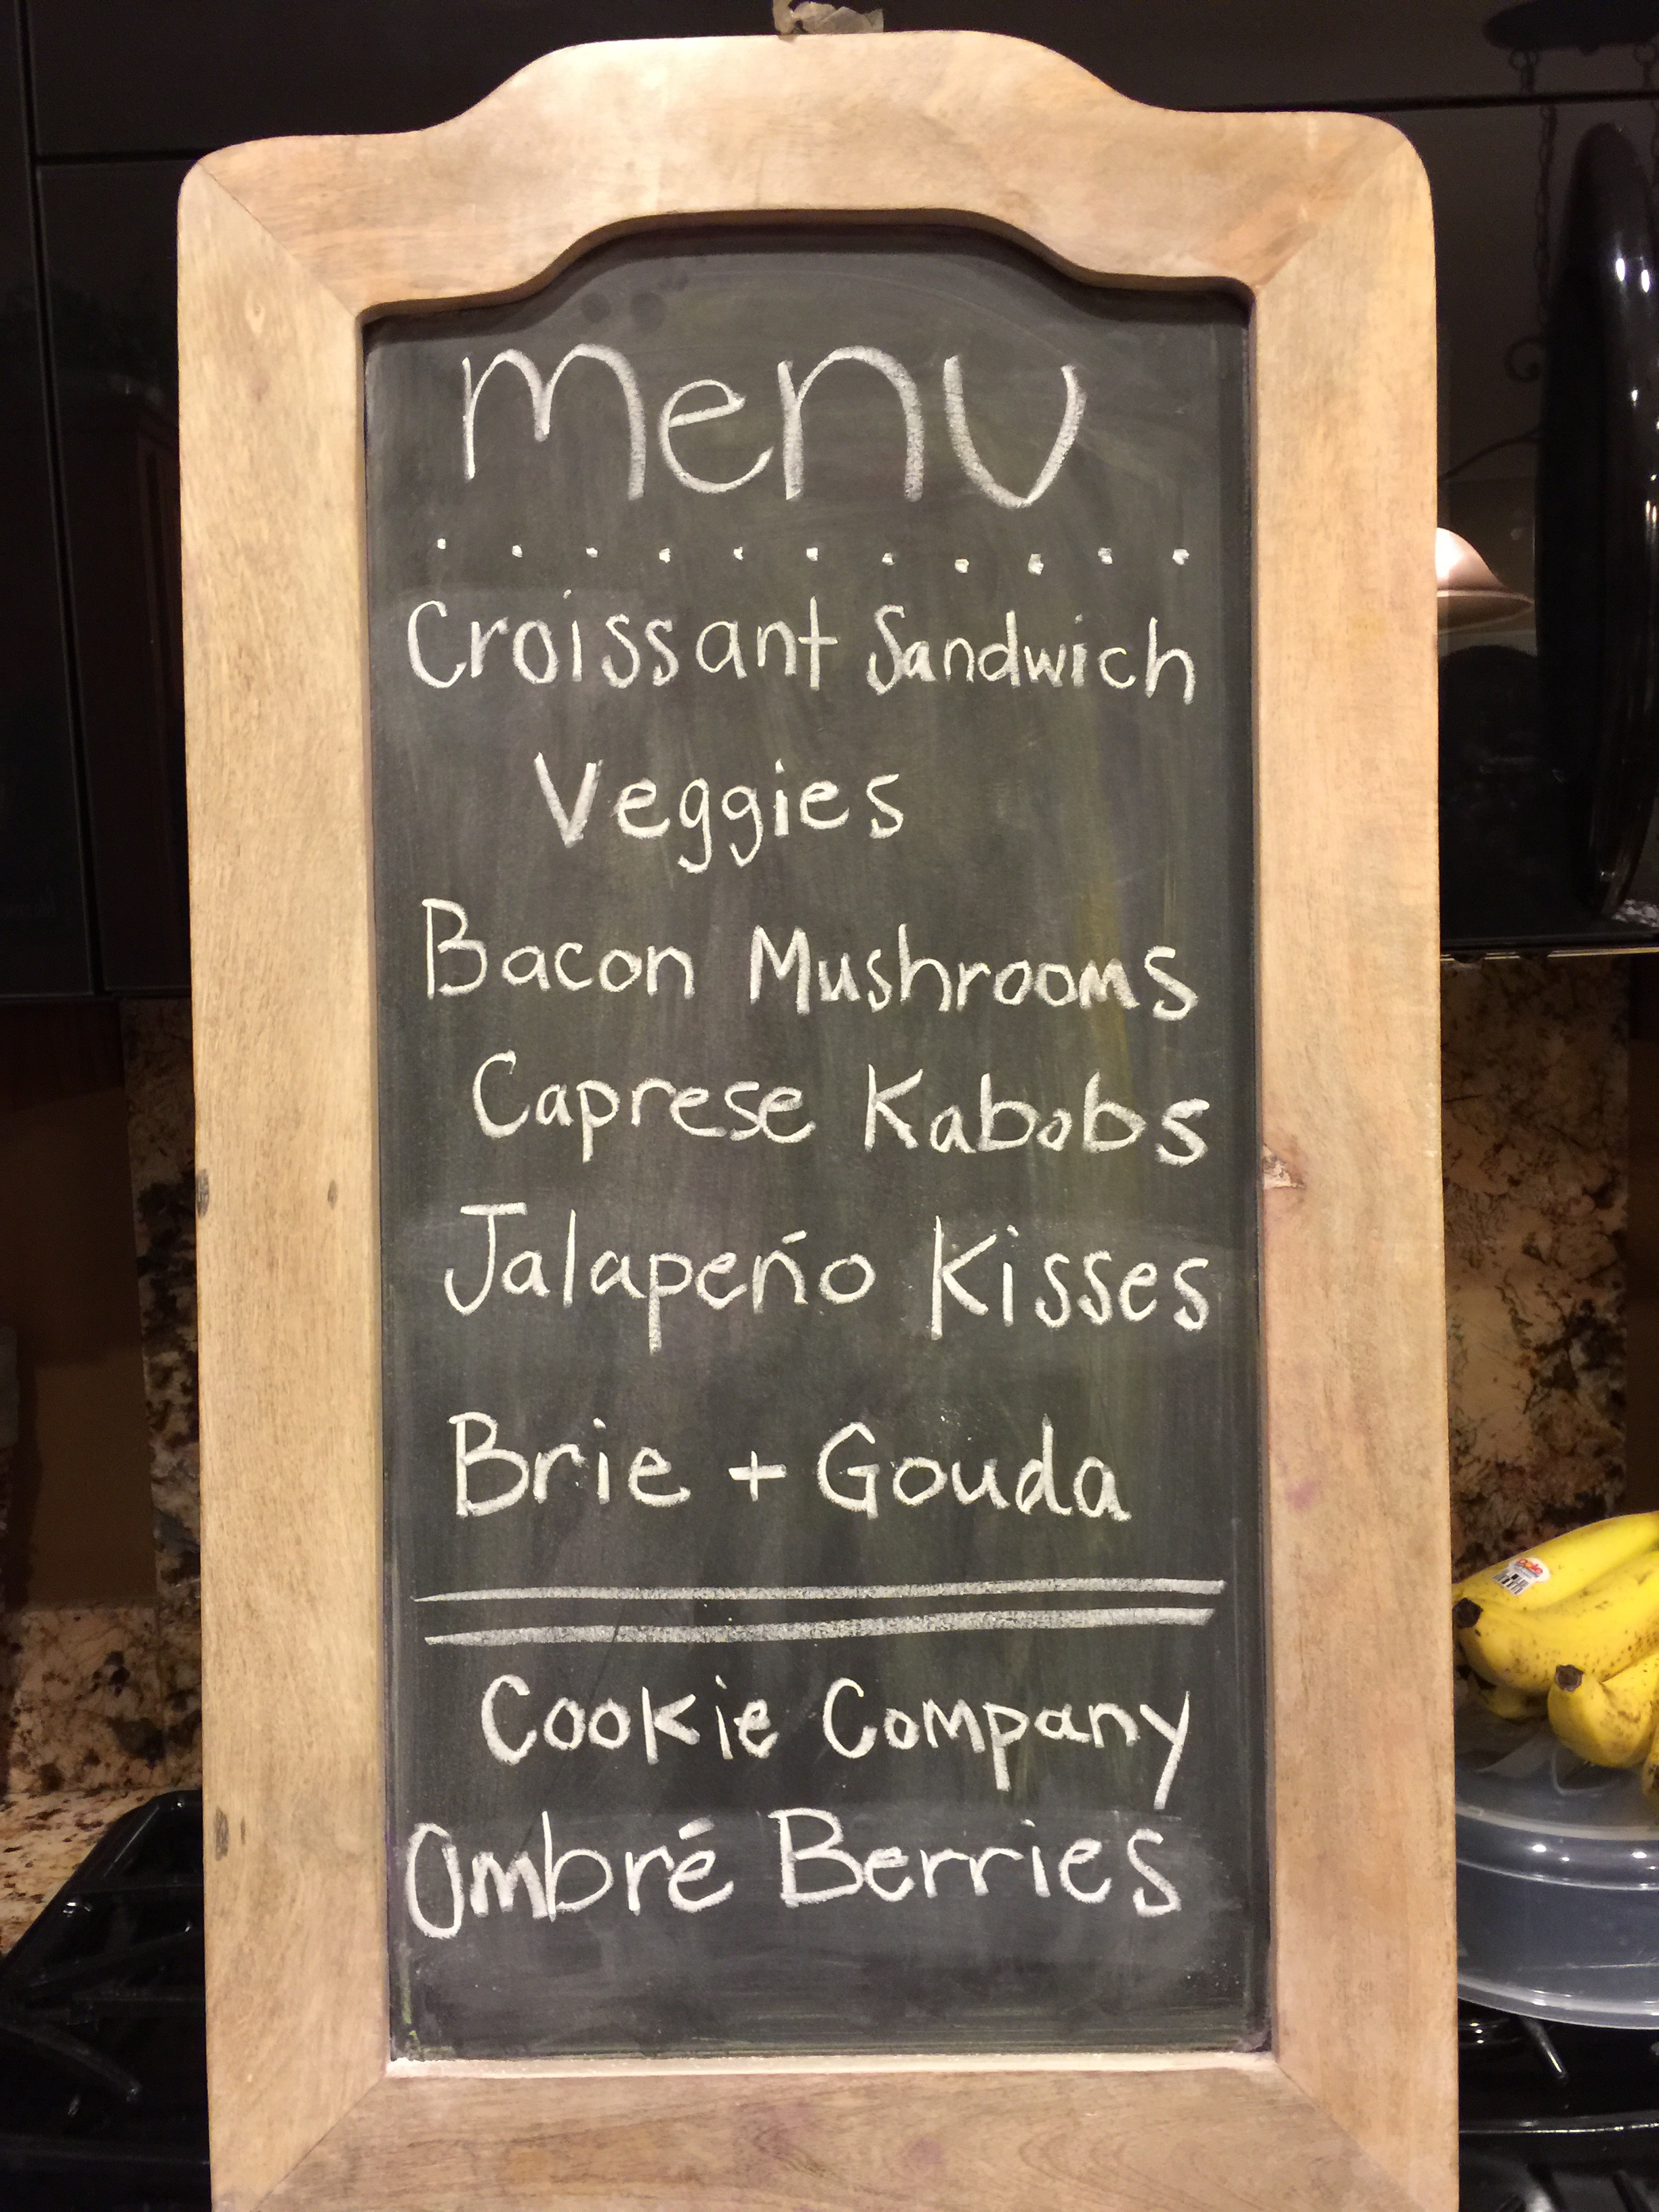 menu
Croissant Sandwich
Veggies
Bacon Mushrooms
Caprese Kabobs
Jalapeño Kisses
Brie + Gouda
Cookie Company
Ombré Berries
Dole